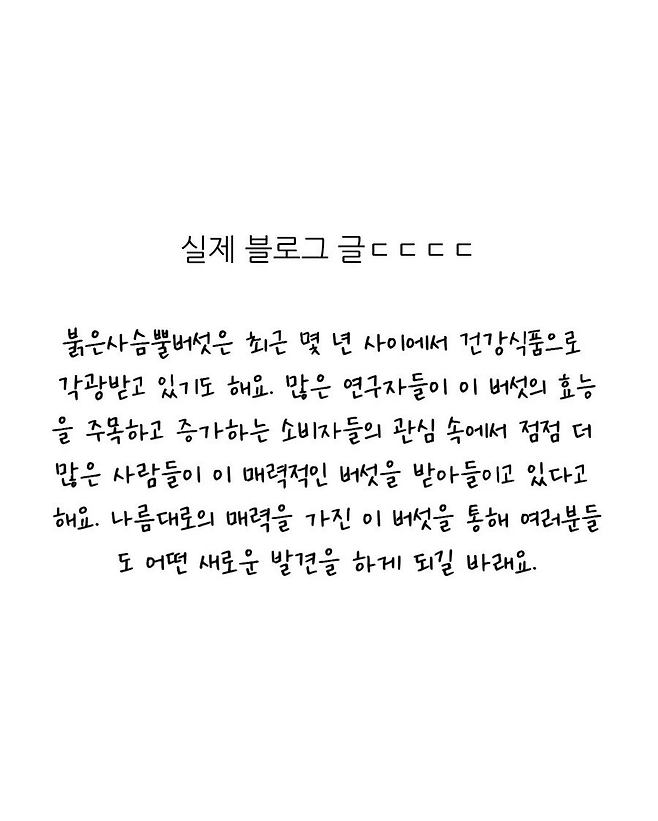 실제 블로그 글ㄷㄷㄷㄷ
붉은사슴뿔버섯은 최근 몇 년 사이에서 건강식품으로
각광받고 있기도 해요. 많은 연구자들이 이 버섯의 효능
을 주목하고 증가하는 소비자들의 관심 속에서 점점 더
많은 사람들이 이 매력적인 버섯을 받아들이고 있다고
해요. 나름대로의 매력을 가진 이 버섯을 통해 여러분들
도 어떤 새로운 발견을 하게 되길 바래요.